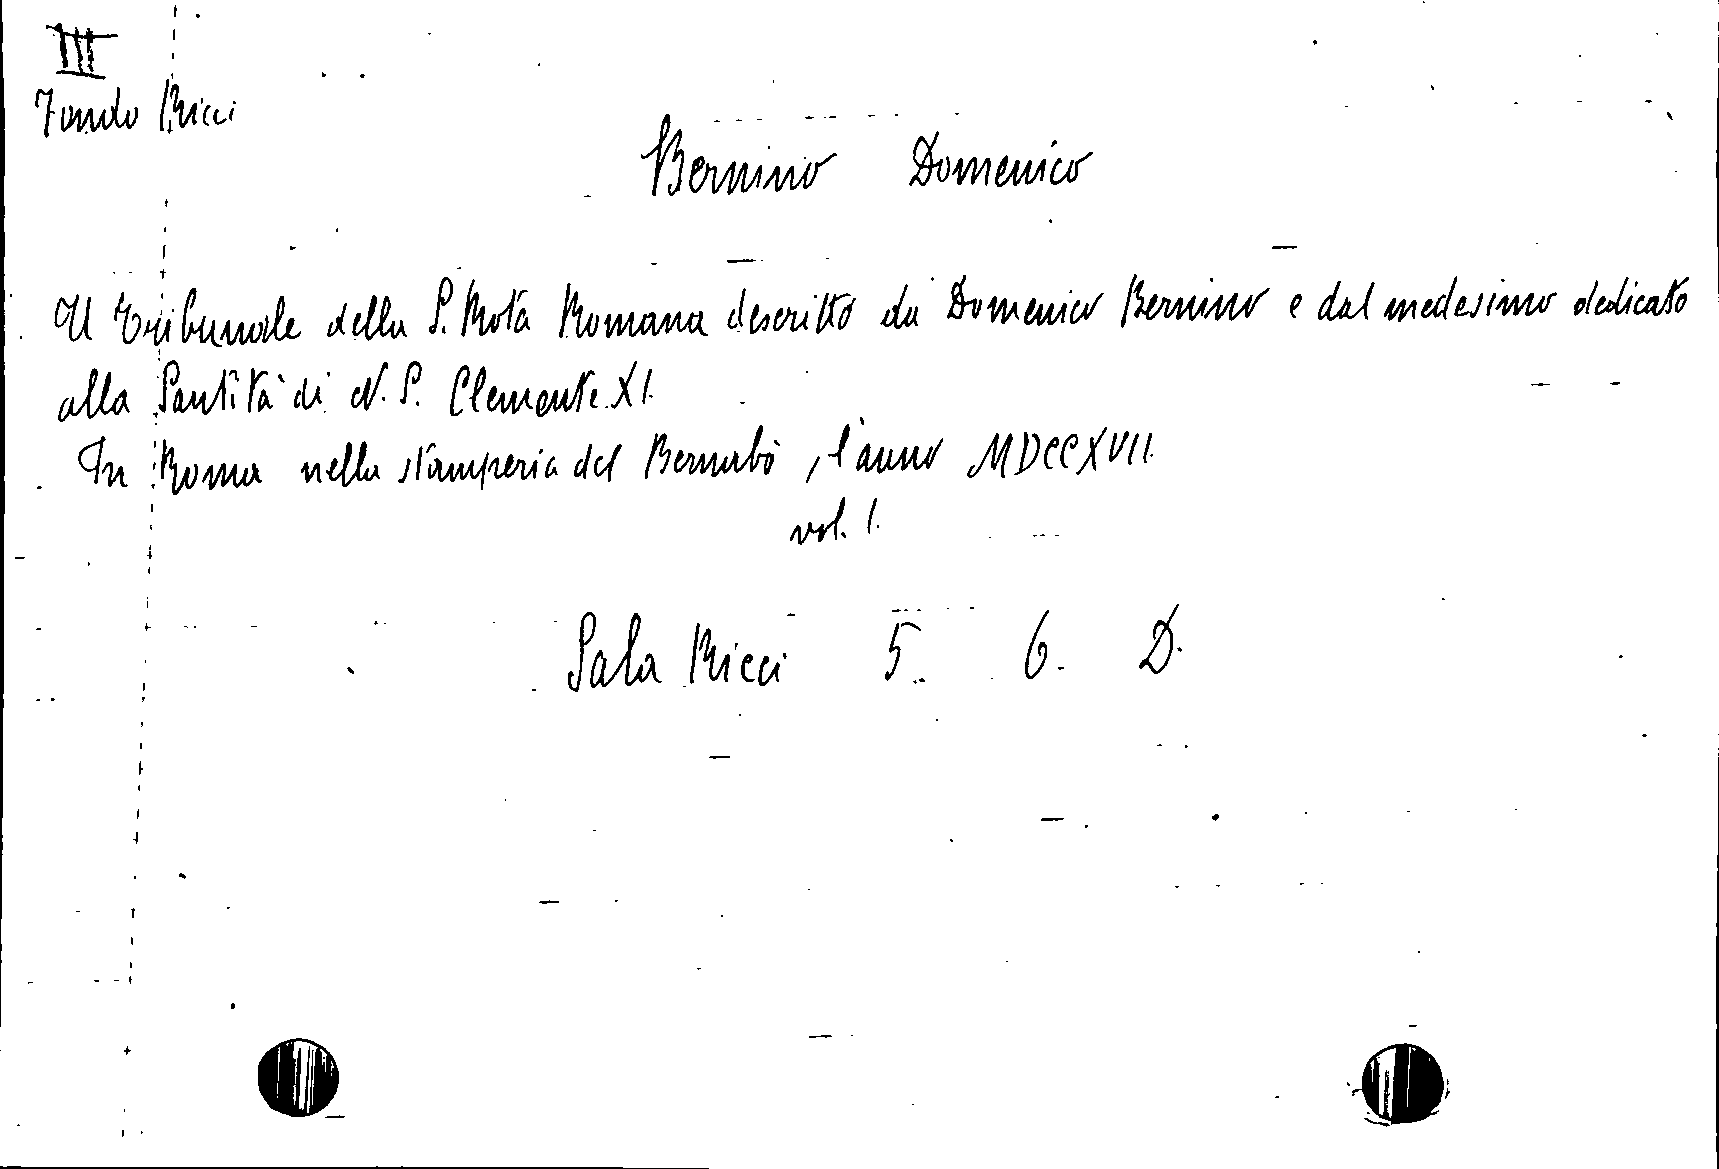 III
Fondo Ricci
Bernino Domenico
Il Tribunale della S. Rota Romana descritto da Domenico Bernino e dal medesimo dedicato
alla Santità di N. S. Clemente XI.
In Roma nella stamperia del Bernabò, l'anno MDCCXVII.
vol. 1.
Sala Ricci 5. 6. D.